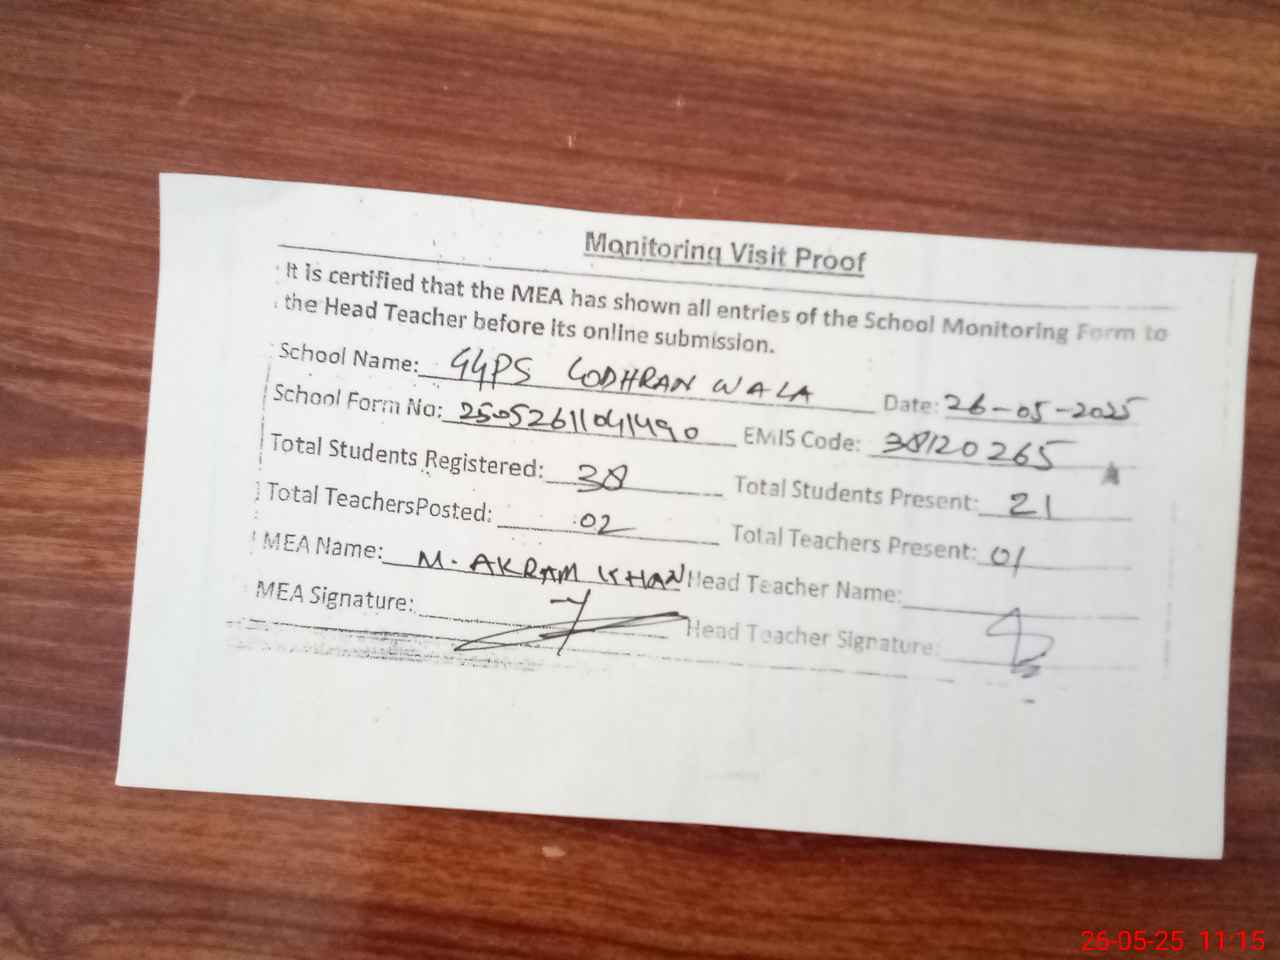 Monitoring Visit Proof
It is certified that the MEA has shown all entries of the School Monitoring Form to
the Head Teacher before its online submission.
School Name: GGPS LODHRAN WALA Date: 26-05-2025
School Form No: 25052611041490 EMIS Code: 38120265
Total Students Registered: 38 Total Students Present: 21
Total TeachersPosted: 02 Total Teachers Present: 01
MEA Name: M. AKRAM KHAN Head Teacher Name:
MEA Signature: Head Teacher Signature:
26-05-25 11:15